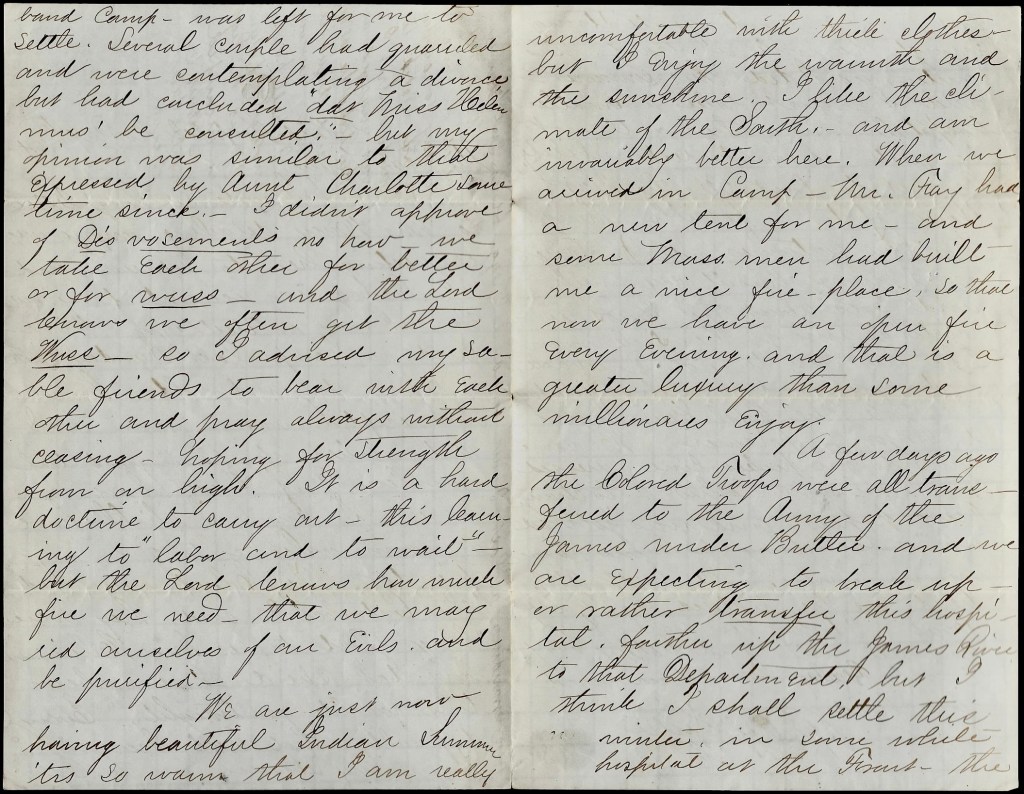 band Camp - was left for me to
settle. Several couple had quarreled
and were contemplating a divorce
but had concluded "dat Miss Helen
mus' be consulted." - but my
opinion was similar to that
expressed by Aunt Charlotte some
time since. - I didn't approve
of Dis vosements no how - we
take Each other for better
or for wuss - and the Lord
knows we often get the
Wuss - so I advised my sa-
ble friends to bear with Each
other and pray always without
ceasing - hoping for strength
from on high. It is a hard
doctrine to carry out - this learn-
ing to "labor and to wait" -
but the Lord knows how much
fire we need - that we may
rid ourselves of our Evils. and
be purified -
We are just now
having beautiful Indian Summer
'tis so warm that I am really
uncomfortable with thick clothes -
but I Enjoy the warmth and
the sunshine. I like the cli-
mate of the South. - and am
invariably better here. When we
arrived in Camp - Mr. Fay had
a new tent for me - and
some Mass. men had built
me a nice fire-place, so that
now we have an open fire
Every Evening. and that is a
greater luxury than some
millionaires Enjoy.
A few days ago
the Colored Troops were all trans-
ferred to the Army of the
James under Butler. and we
are Expecting to break up -
or rather transfer this hospi-
tal. farther up the James River
to that Department. but I
think I shall settle this
winter. in some white
hospital at the Front - the